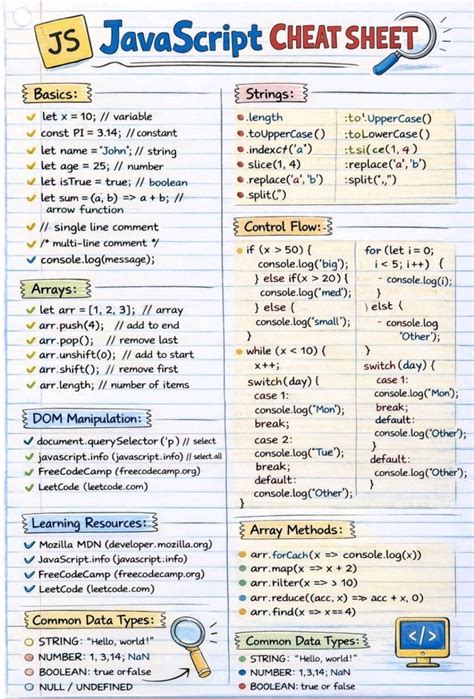 JS JavaScript CHEAT SHEET
Basics:
let x = 10; // variable
const PI = 3.14; // constant
let name = "John"; // string
let age = 25; // number
let isTrue = true; // boolean
let sum = (a, b) => a + b; //
arrow function
// single line comment
/* multi-line comment */
console.log(message);
Arrays:
let arr = [1, 2, 3]; // array
arr.push(4); // add to end
arr.pop(); // remove last
arr.unshift(0); // add to start
arr.shift(); // remove first
arr.length; // number of items
DOM Manipulation:
document.querySelector('p') // select
javascript.info (javascript.info) // select.all
FreeCodeCamp (freecodecamp.org)
LeetCode (leetcode.com)
Learning Resources:
Mozilla MDN (developer.mozilla.org)
JavaScript.info (javascript.info)
FreeCodeCamp (freecodecamp.org)
LeetCode (leetcode.com)
Common Data Types:
STRING: "Hello, world!"
NUMBER: 1,3,14; NaN
BOOLEAN: true or false
NULL / UNDEFINED
Strings:
.length
.toUpperCase()
.indexct('a')
slice(1, 4)
.replace('a', 'b')
.split(",")
:to'.UpperCase()
:toLowerCase()
:replace('a', 'b')
:split(",")
Control Flow:
if (x > 50) {
console.log('big');
} else if(x > 20) {
console.log('med');
} else {
console.log("small");
}
while (x < 10) {
x++;
switch(day) {
case 1:
console.log("Mon');
break;
case 2:
console.log("Tue");
break;
default:
console.log("Other');
}
for (let i = 0;
i < 5; i++) {
- console.log(i);
}
} elst {
- console.log
"Other');
}
switch(day) {
case 1:
console.log("Mon');
break;
default:
console.log("Other');
}
break;
default:
console.log("Other');
}
Array Methods:
arr.forCach(x => console.log(x))
arr.map(x => x + 2)
arr.rilter(x => > 10)
arr.reduce((acc, x) => acc + x, 0)
arr.find(x => x== 4)
Common Data Types:
STRING: "Hello, world!"
NUMBER: 1,3,14; NaN
BOOLEAN: true or false
</>